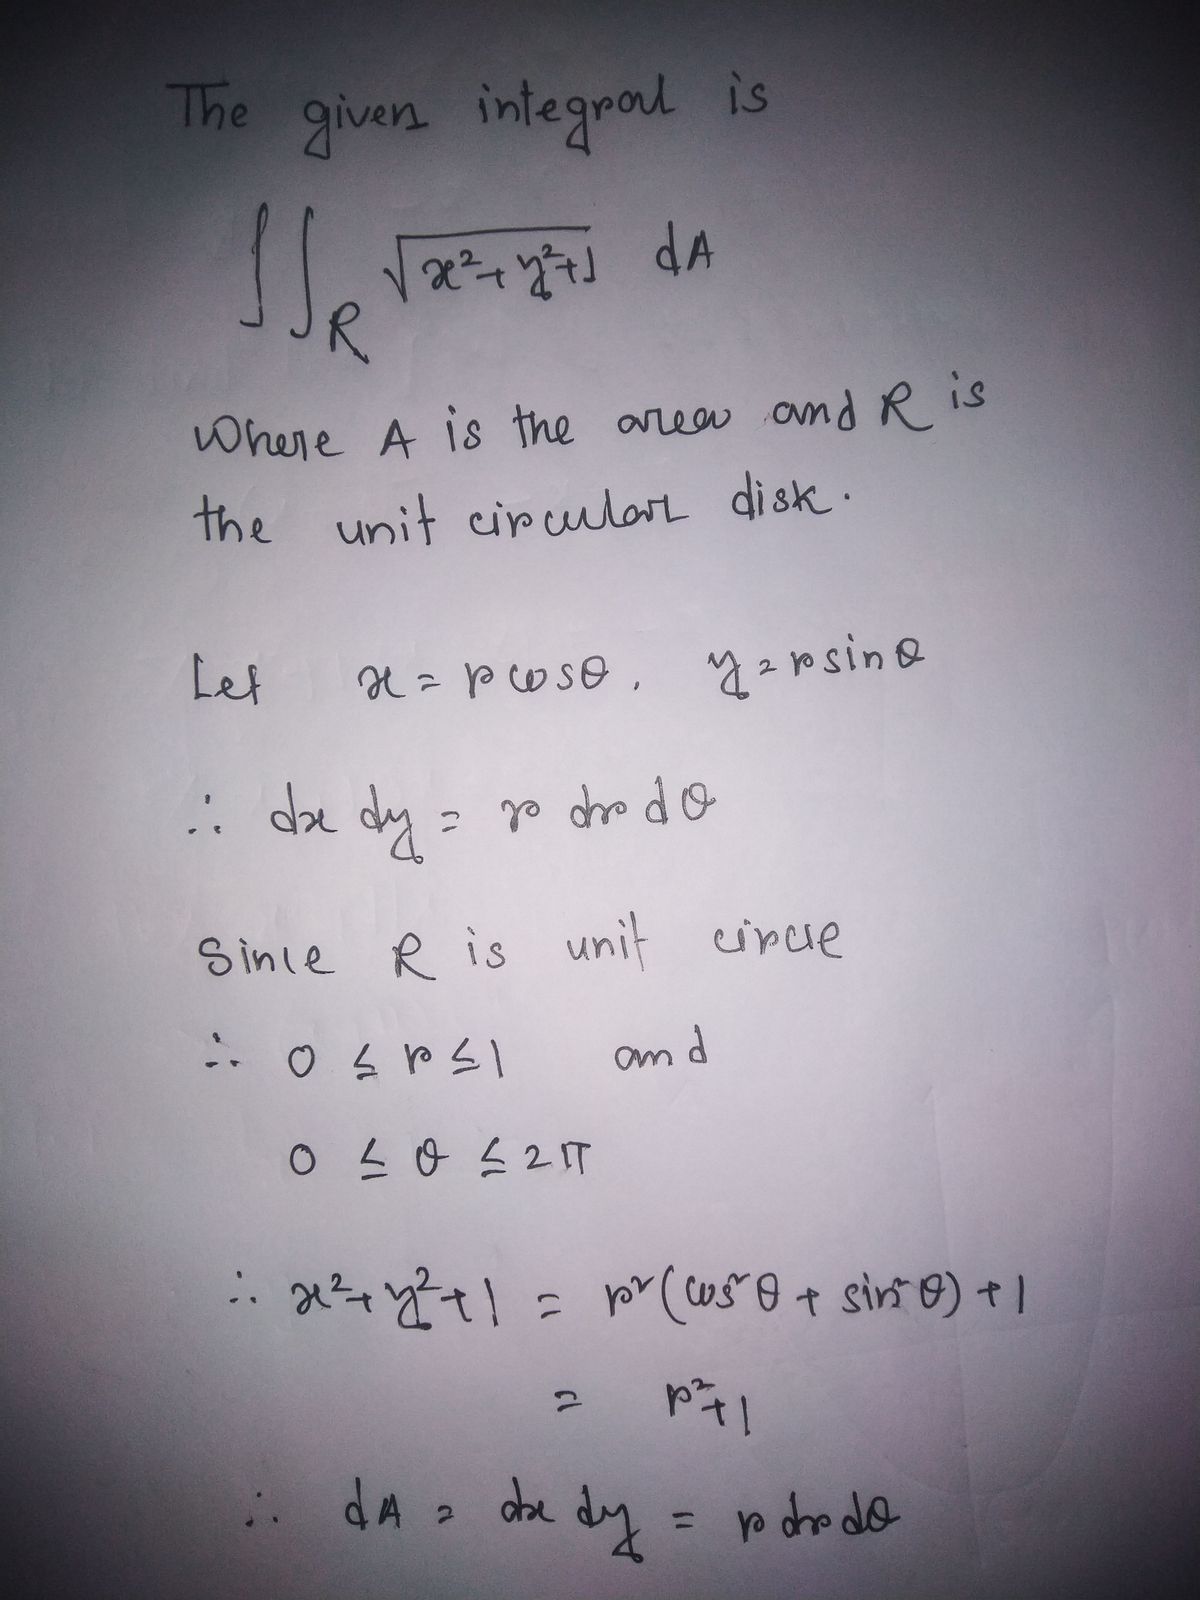 The given integral is
∬_R √(x²+y²+1) dA
Where A is the area and R is
the unit circular disk.
Let x = r cosθ, y = r sinθ
∴ dx dy = r dr dθ
Since R is unit circle
∴ 0 ≤ r ≤ 1 and
0 ≤ θ ≤ 2π
∴ x²+y²+1 = r²(cos²θ + sin²θ) + 1
= r²+1
∴ dA = dx dy = r dr dθ